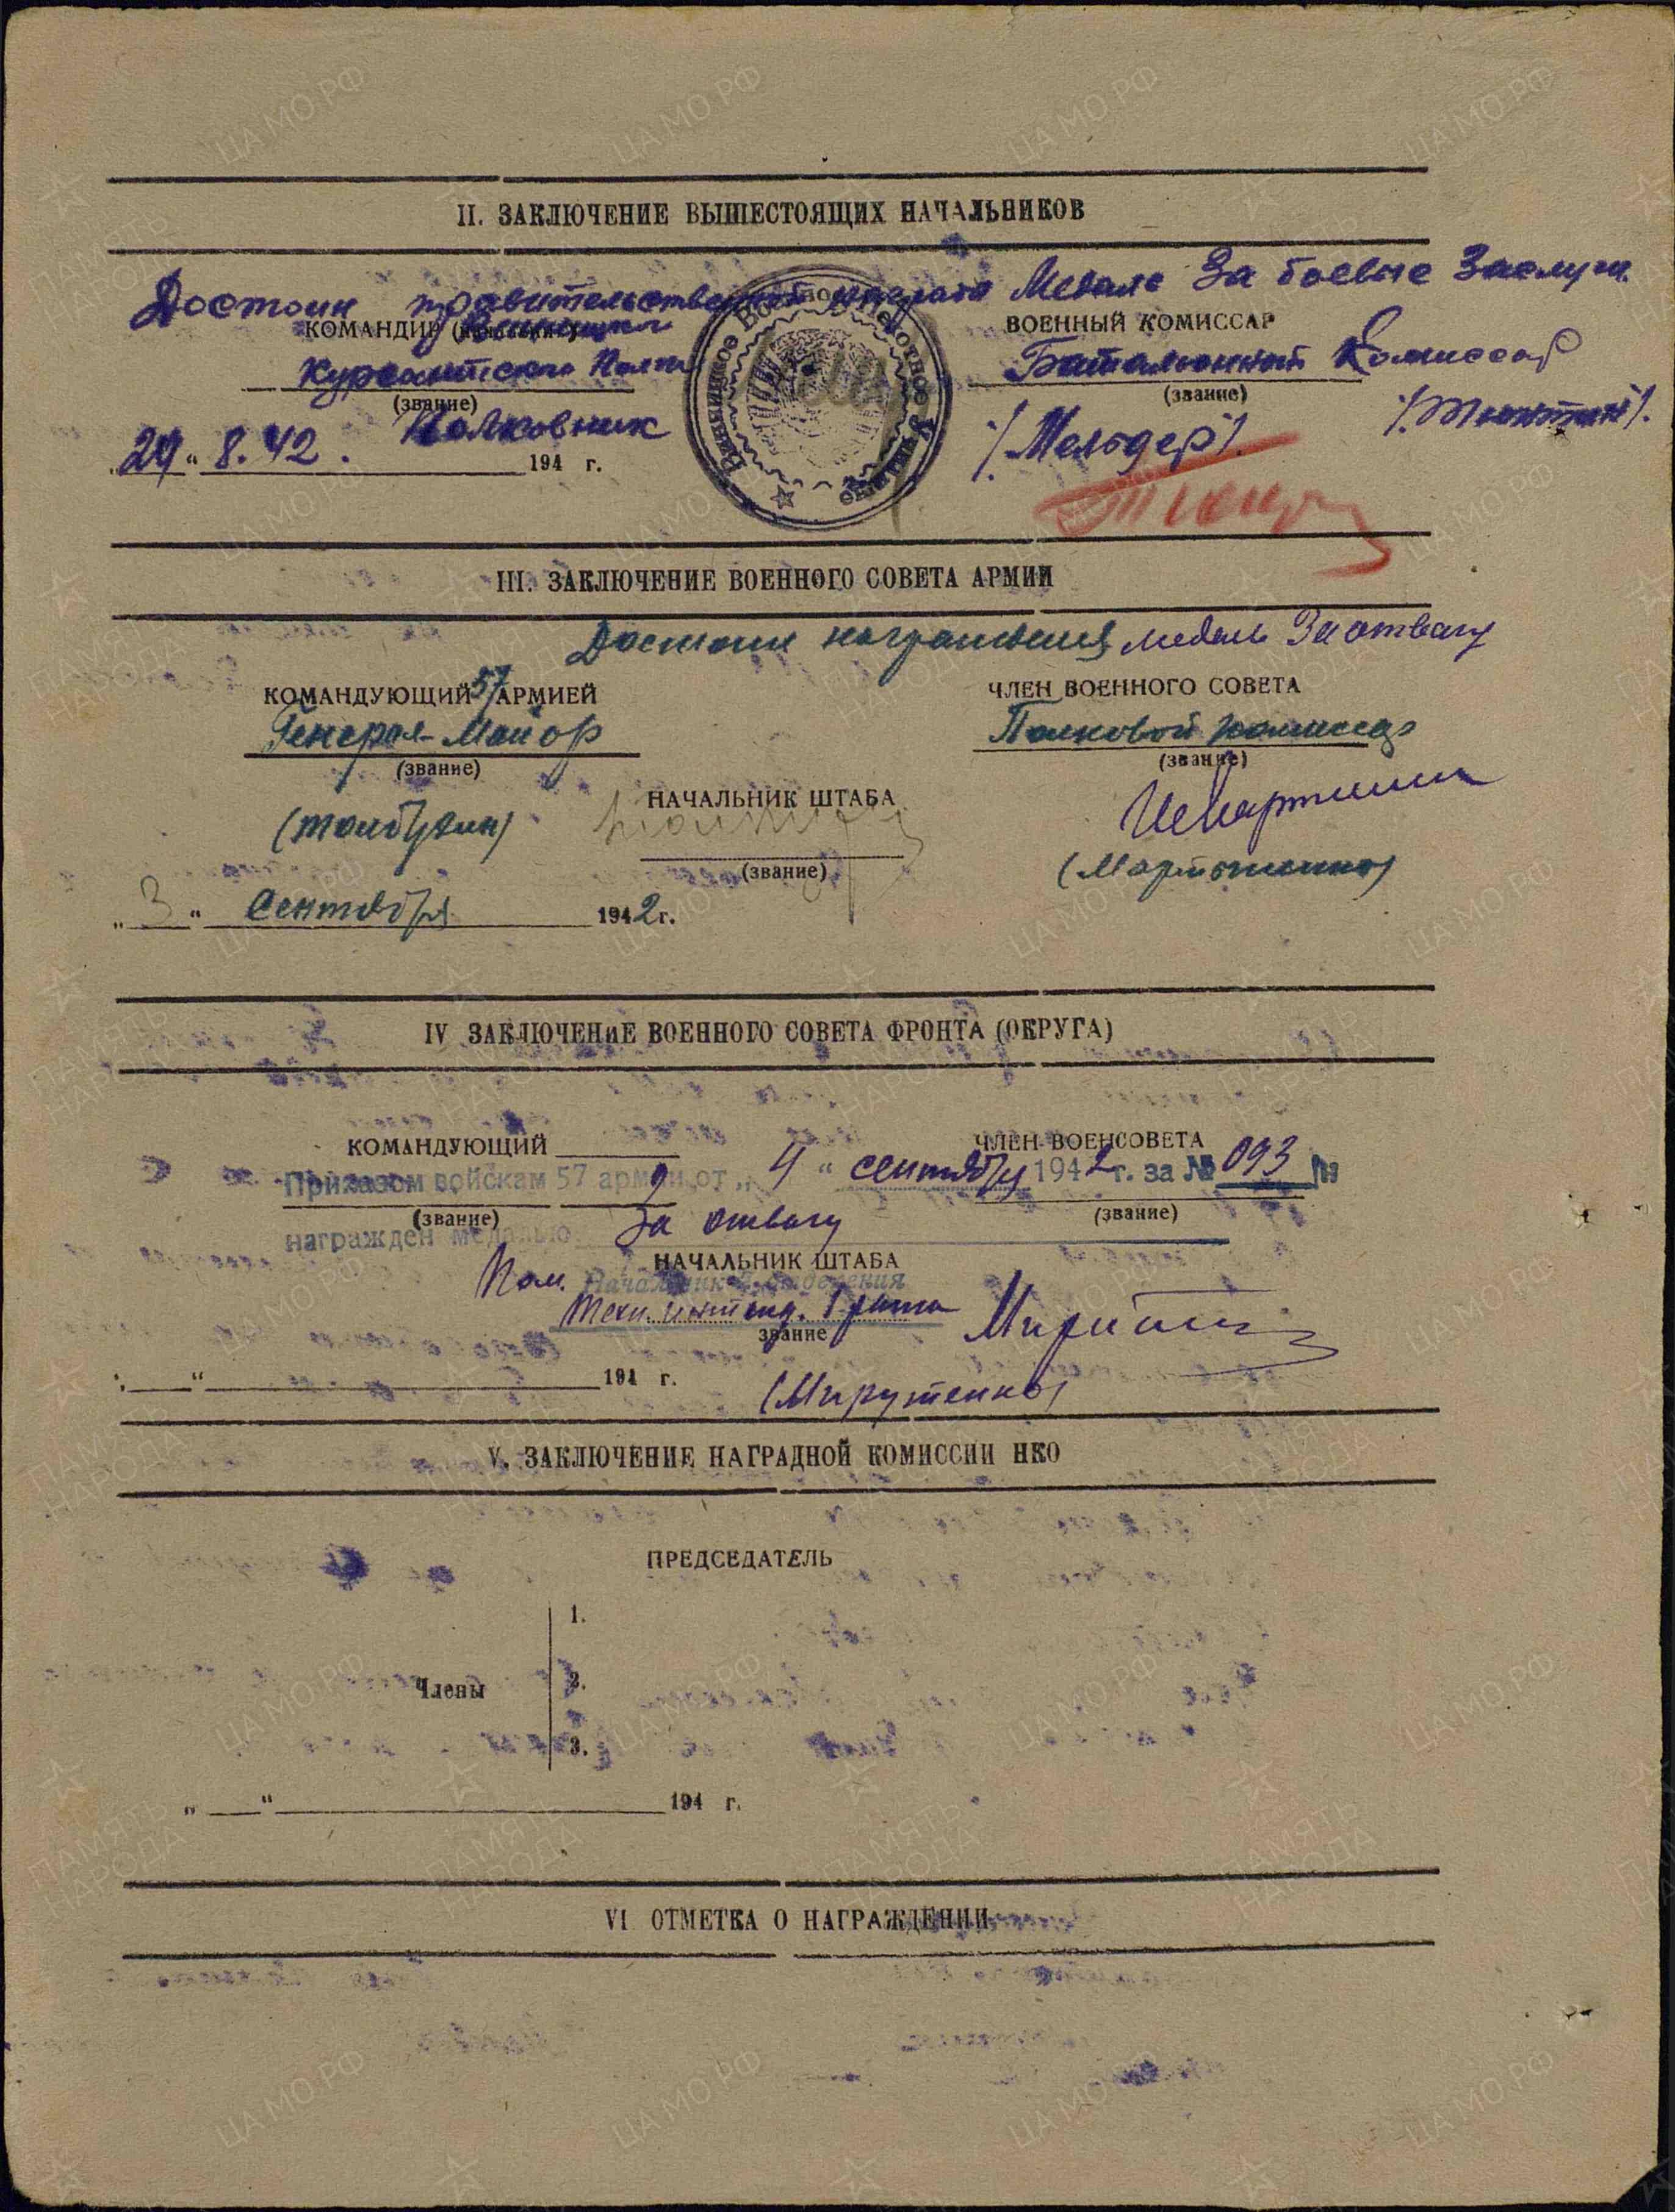 II. ЗАКЛЮЧЕНИЕ ВЫШЕСТОЯЩИХ НАЧАЛЬНИКОВ
Достоин правительственной награды Медаль За боевые Заслуги.
КОМАНДИР (начальник)
ВОЕННЫЙ КОМИССАР
Курсантского Полка
Батальонный Комиссар
(звание)
(звание)
Полковник
"29" 8.42. 194 г.
/Мельдер/.
Винницкое Военное Пехотное Училище
III. ЗАКЛЮЧЕНИЕ ВОЕННОГО СОВЕТА АРМИИ
Достоин награждения медаль За отвагу
КОМАНДУЮЩИЙ 57 АРМИЕЙ
ЧЛЕН ВОЕННОГО СОВЕТА
Генерал-Майор
Полковой комиссар
(звание)
(звание)
НАЧАЛЬНИК ШТАБА
(Толбухин)
(звание)
"3" Сентября 1942 г.
IV ЗАКЛЮЧЕНИЕ ВОЕННОГО СОВЕТА ФРОНТА (ОКРУГА)
КОМАНДУЮЩИЙ
ЧЛЕН ВОЕНСОВЕТА
Приказом войскам 57 армии от "4" сентября 1942 г. за № 093/н
(звание)
(звание)
награжден медалью За отвагу
НАЧАЛЬНИК ШТАБА
Пом. Начальник отделения
Техн. интенд. 1 ранга
звание
" " 194 г.
(Мирутенко)
V. ЗАКЛЮЧЕНИЕ НАГРАДНОЙ КОМИССИИ НКО
ПРЕДСЕДАТЕЛЬ
Члены
1.
2.
3.
" " 194 г.
VI ОТМЕТКА О НАГРАЖДЕНИИ
ЦАМО РФ
ПАМЯТЬ НАРОДА